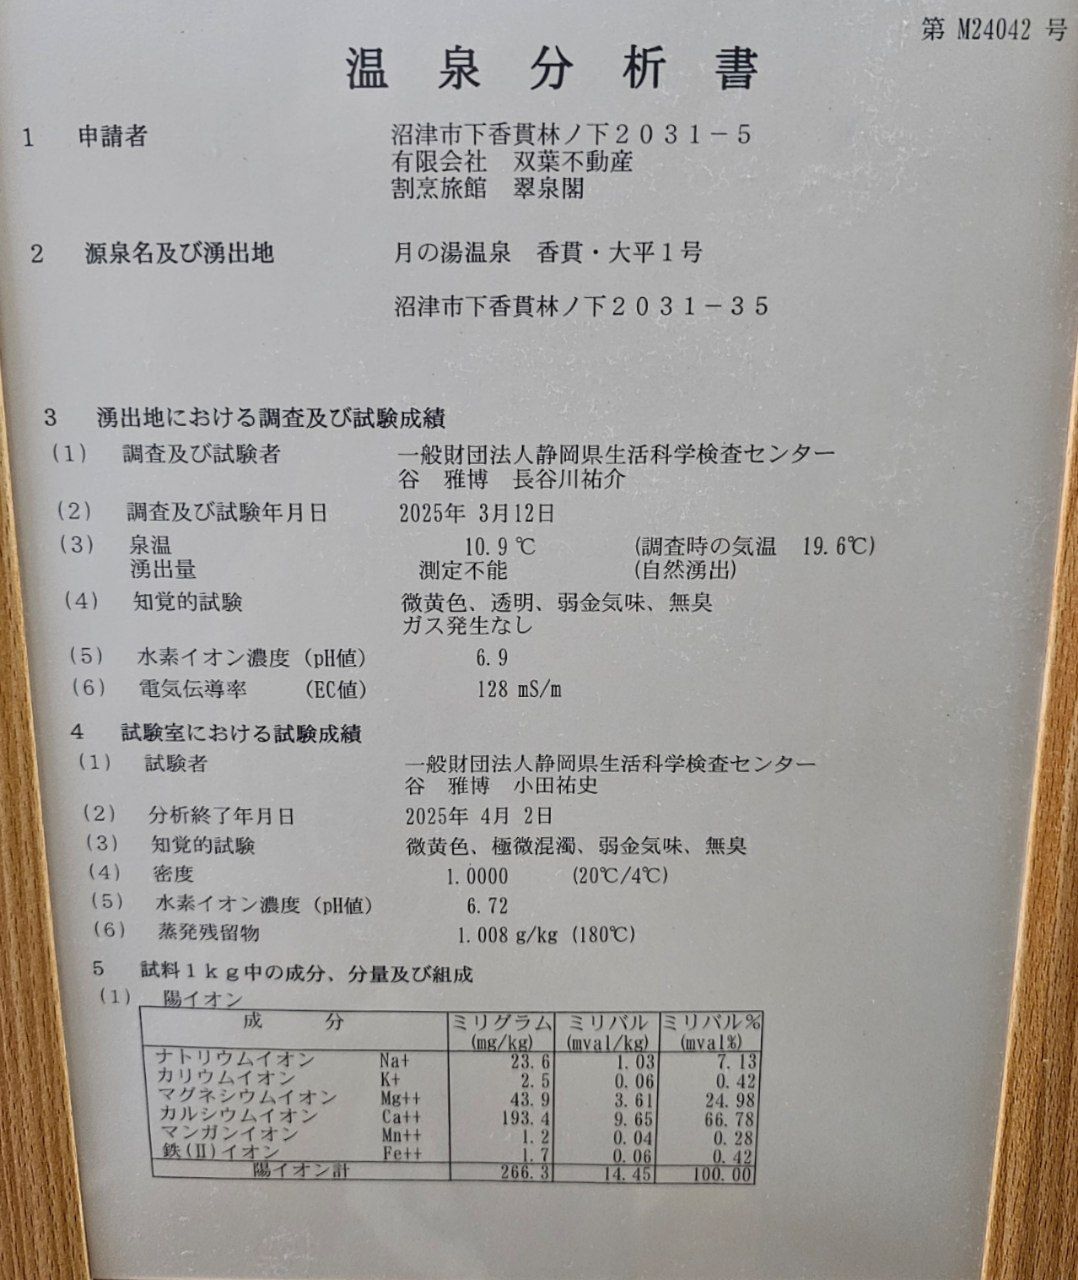 第 M24042 号
温泉分析書
1 申請者 沼津市下香貫林ノ下2031-5
有限会社 双葉不動産
割烹旅館 翠泉閣
2 源泉名及び湧出地 月の湯温泉 香貫・大平1号
沼津市下香貫林ノ下2031-35
3 湧出地における調査及び試験成績
(1) 調査及び試験者 一般財団法人静岡県生活科学検査センター
谷 雅博 長谷川祐介
(2) 調査及び試験年月日 2025年 3月12日
(3) 泉温 10.9 ℃ (調査時の気温 19.6℃)
湧出量 測定不能 (自然湧出)
(4) 知覚的試験 微黄色、透明、弱金気味、無臭
ガス発生なし
(5) 水素イオン濃度 (pH値) 6.9
(6) 電気伝導率 (EC値) 128 mS/m
4 試験室における試験成績
(1) 試験者 一般財団法人静岡県生活科学検査センター
谷 雅博 小田祐史
(2) 分析終了年月日 2025年 4月 2日
(3) 知覚的試験 微黄色、極微混濁、弱金気味、無臭
(4) 密度 1.0000 (20℃/4℃)
(5) 水素イオン濃度 (pH値) 6.72
(6) 蒸発残留物 1.008 g/kg (180℃)
5 試料1kg中の成分、分量及び組成
(1) 陽イオン
成 分 ミリグラム ミリバル ミリバル%
(mg/kg) (mval/kg) (mval%)
ナトリウムイオン Na+ 23.6 1.03 7.13
カリウムイオン K+ 2.5 0.06 0.42
マグネシウムイオン Mg++ 43.9 3.61 24.98
カルシウムイオン Ca++ 193.4 9.65 66.78
マンガンイオン Mn++ 1.2 0.04 0.28
鉄(Ⅱ)イオン Fe++ 1.7 0.06 0.42
陽イオン計 266.3 14.45 100.00